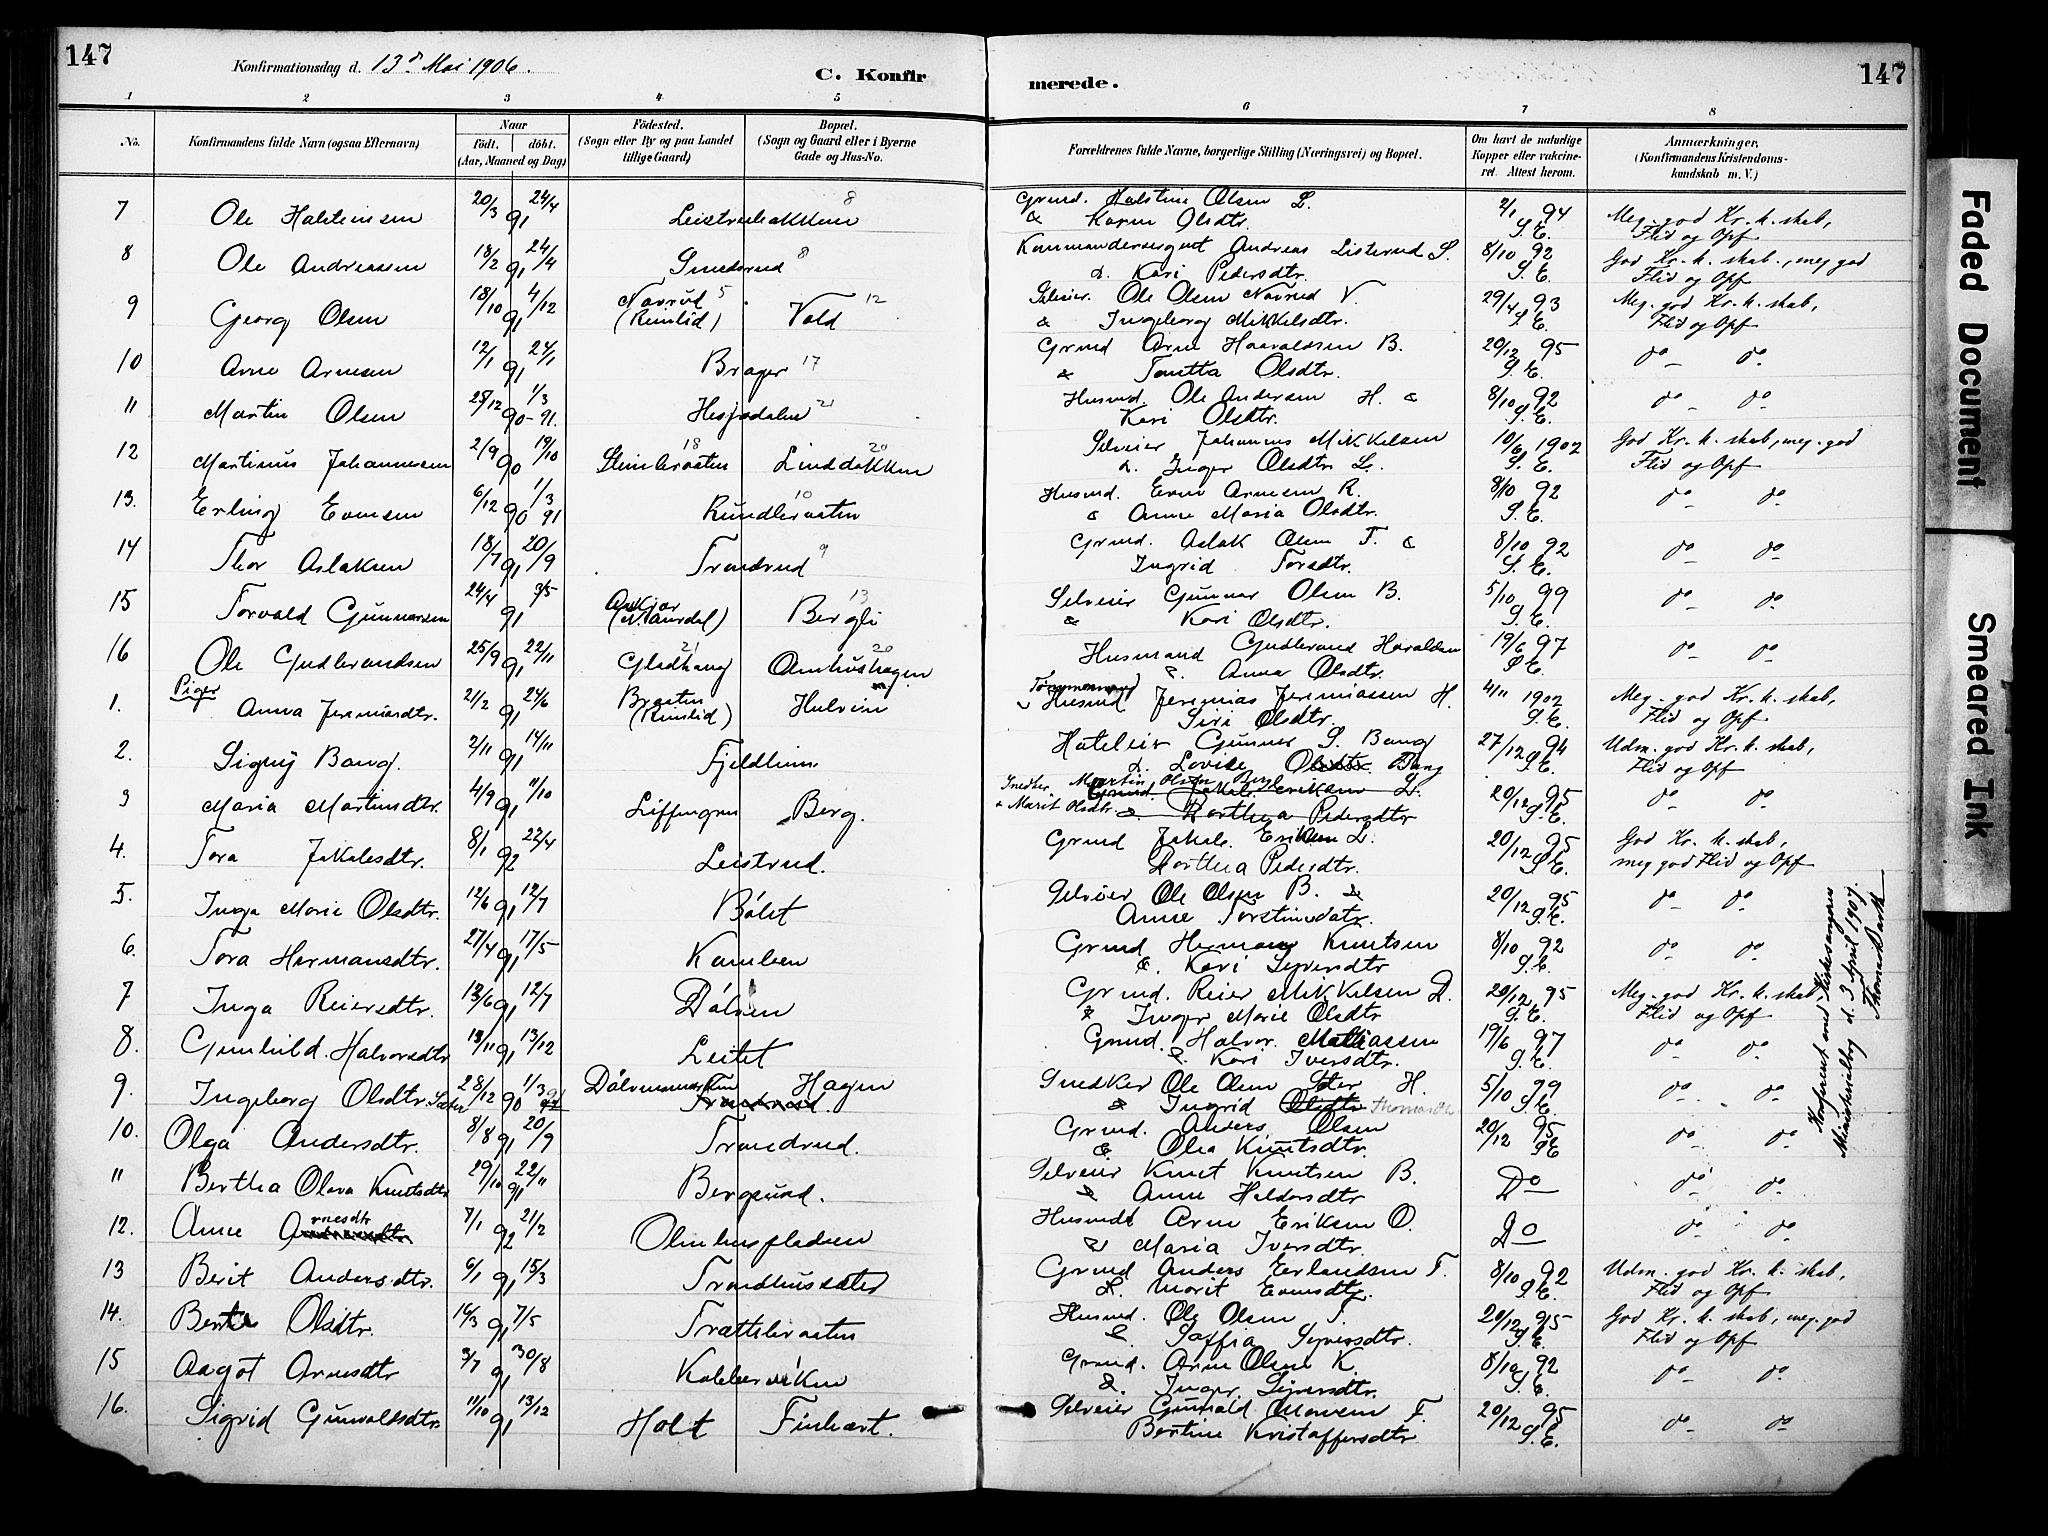 147
Konfirmationsdag d. 13de Mai 1906.
C. Konfir
merede.
147
1 2 3 4 5 6 7 8
No.
Konfirmandens fulde Navn (ogsaa Efternavn)
Naar
födt. döbt.
(Aar, Maaned og Dag)
Födested.
(Sogn eller By og paa Landet
tillige Gaard)
Bopæl.
(Sogn og Gaard eller i Byerne
Gade og Hus-No.
Forældrenes fulde Navne, borgerlige Stilling (Næringsvei) og Bopæl.
Om havt de naturlige
Kopper eller vakcine-
ret. Attest herom.
Anmærkninger,
(Konfirmandens Kristendoms-
kundskab m. V.)
7 Ole Halstensen 20/3 91 24/4 8 Grmd. Halsten Olsen L. 2/1 94 Meg. god Kr. k. skab,
& Karen Olsdtr. S. E. Flid og Opf
8 Ole Andreassen 18/2 91 24/4 Smedsrud 8 Andreas Listerud S. 8/10 92 God Kr. k. skab., meg god
& Kari Pedersdtr. S. E. Flid og Opf
9 Georg Olsen 18/10 91 4/12 Navrud 5 (Reinlid) Vold 12 Selveier. Ole Olsen Navrud V. 29/4 93 Meg. god Kr. k. skab,
& Ingeborg Mikkelsdtr. S. E. Flid og Opf
10 Arne Arnesen 12/1 91 24/1 Brager 17 Grmd Arne Haavaldsen B. 20/12 95 do do
& Olsdtr. S. E.
11 Martin Olsen 28/12 90 1/3 91. Hesjedalen 21 Husmd. Ole Andersen H. & 8/10 92 do do
Kari Olsdtr. S. E.
12 Martinus Johannessen 2/9 90 19/10 18 Linddokken 20 Selveier Johannes Mikkelsen 10/6 1902 God Kr. k. skab, meg. god
& Inger Olsdtr L. S. E. Flid og Opf
13. Erling Evensen 6/12 90 1/3 91 10 Husmd. Even Arnesen R. 8/10 92 do do
& Anne Maria Olsdtr. S. E.
14 Thor Aslaksen 18/7 91 20/9 Trondrud 9 Grmd. Aslak Olsen T. & 8/10 92 do do
Ingrid Torsdtr. S. E.
15 Torvald Gunnarsen 24/4 91 3/5 (N. Aurdal) Bergli 13 Selveier Gunnar Olsen B. 5/10 99 do do
& Kari Olsdtr. S. E.
16 Ole Gudbrandsen 25/9 91 22/11 21 Olmhushagen 20 Husmand Gudbrand Haraldsen 19/6 97 do do
& Anna Olsdtr. S. E.
Piger
1. Anna Jeremiasdtr. 21/2 91 24/6 Braaten (Reinlid) Hulvien Tømmermand Husmd Jeremias Jeremiassen H. 4/11 1902 Meg. god Kr. k. skab,
& Siri Olsdtr. S. E. Flid og Opf
2. Signy Bang. 2/11 91 14/11 Fjeldheim Hoteleier Gunnar S. Bang 27/12 94 Udm. god Kr. k. skab,
& Lovise Olsdtr. Bang S. E. Flid og Opf
3 Maria Martinsdtr. 4/9 91 11/10 Berg. Snedker Martin Olsen Berg Grmd. Jakob Eriksen L. 20/12 95 do do
& Marit Olsdtr. & Dorthea Pedersdtr S. E.
4. Tora Jakobsdtr. 8/1 92 22/4 Leistrud. Grmd Jakob Eriksen L. 20/12 95 God Kr. k. skab,
Dorthea Pedersdtr. S. E. meg god Flid og Opf
5. Inga Marie Olsdtr. 12/6 91 12/7 Bólet Selveier Ole Olsen B. & 20/12 95 do do
Anne Torstensdatr. S. E.
6. Tora Hermansdtr. 27/4 91 17/5 Grmd Herman Knutsen 8/10 92 do do
& Kari Syversdtr S. E.
7 Inga Reiersdtr. 12/6 91 12/7 Dólven Grmd. Reier Mikkelsen D. 20/12 95 Meg. god Kr. k. skab,
& Inger Marie Olsdtr S. E. Flid og Opf
8. Gunhild Halvorsdtr 13/11 91 13/12 Leitet Grmd. Halvor Mathiassen 19/6 97 do do
& Kari Iversdtr. S. E.
9. Ingeborg Olsdtr. Sæter 28/12 90 1/3 91 Trondrud. Hagen Snedker Ole Olsen Sæter H. 5/10 99 do do
& Ingrid Olsdtr S. E.
10. Olga Andersdtr. 8/8 91 20/9 Trondrud. Grmd. Anders Olsen 20/12 95 do do
& Olea Knutsdtr. S. E.
11 Bertha Olava Knutsdtr 29/10 91 22/11 Bergsund. Selveier Knut Knutsen B. Do do do
& Anne Haldorsdtr
12. Anne Arnesdtr 7/1 92 21/2 Olmhuspladsen Husmd Arne Eriksen O. Do do do
& Maria Iversdtr.
13 Berit Andersdtr. 6/1 91 15/3 Trondhussæter Grmd Anders Erlandsen T. 8/10 92 Udm. god Kr. k. skab,
& Marit Evensdtr. S. E. Flid og Opf
14. Olsdtr. 16/3 91 7/5 Trættebraaten Husmd. Ole Olsen T. 20/12 95 God Kr. k. skab, meg. god
& Syversdtr. S. E. Flid og Opf
15 Aagot Arnesdtr 3/7 91 30/8 Kolbervíken Grmd. Arne Olsen K. 8/10 92 do do
& Inger Syversdtr. S. E.
16. Sigrid Gunvaldsdtr. 11/10 91 13/12 Holt Finhært. Selveier Gunvald F. 20/12 95 do do
Bertine Kristoffersdtr S. E.
Konfereret med Kirkesangerens
Ministerialbog d. 3 April 1907.
Thomas Barth
Faded Document
Smeared Ink